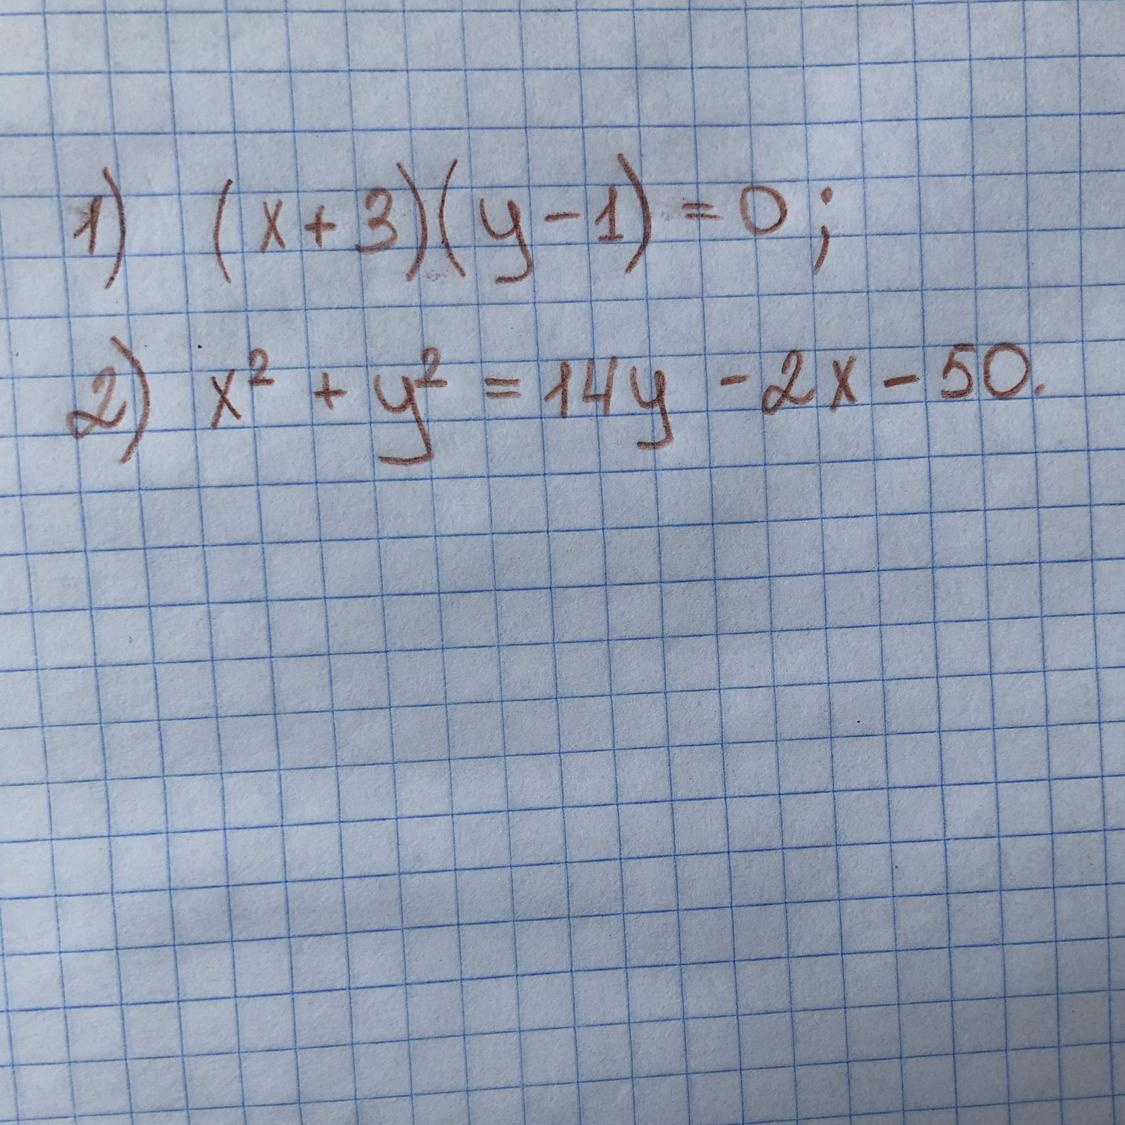 1) (x+3)(y-1) = 0;
2) x² + y² = 14y - 2x - 50.